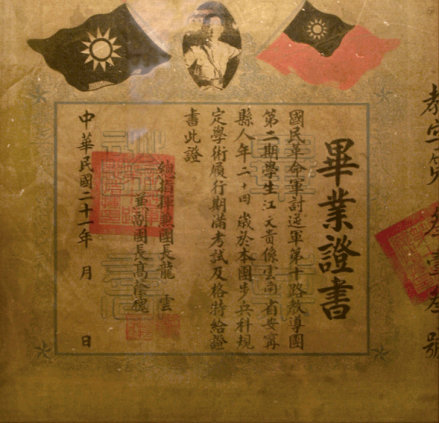 畢業證書
國民革命軍討逆軍第十路教導團
第二期學生江文賁係雲南省安寧
縣人年二十四歲於本團步兵科規
定學術履行期滿考試及格特給證
書此證
總指揮兼團長龍雲
兼副團長高蔭槐
中華民國二十一年 月 日
教字第 叁壹叁 號